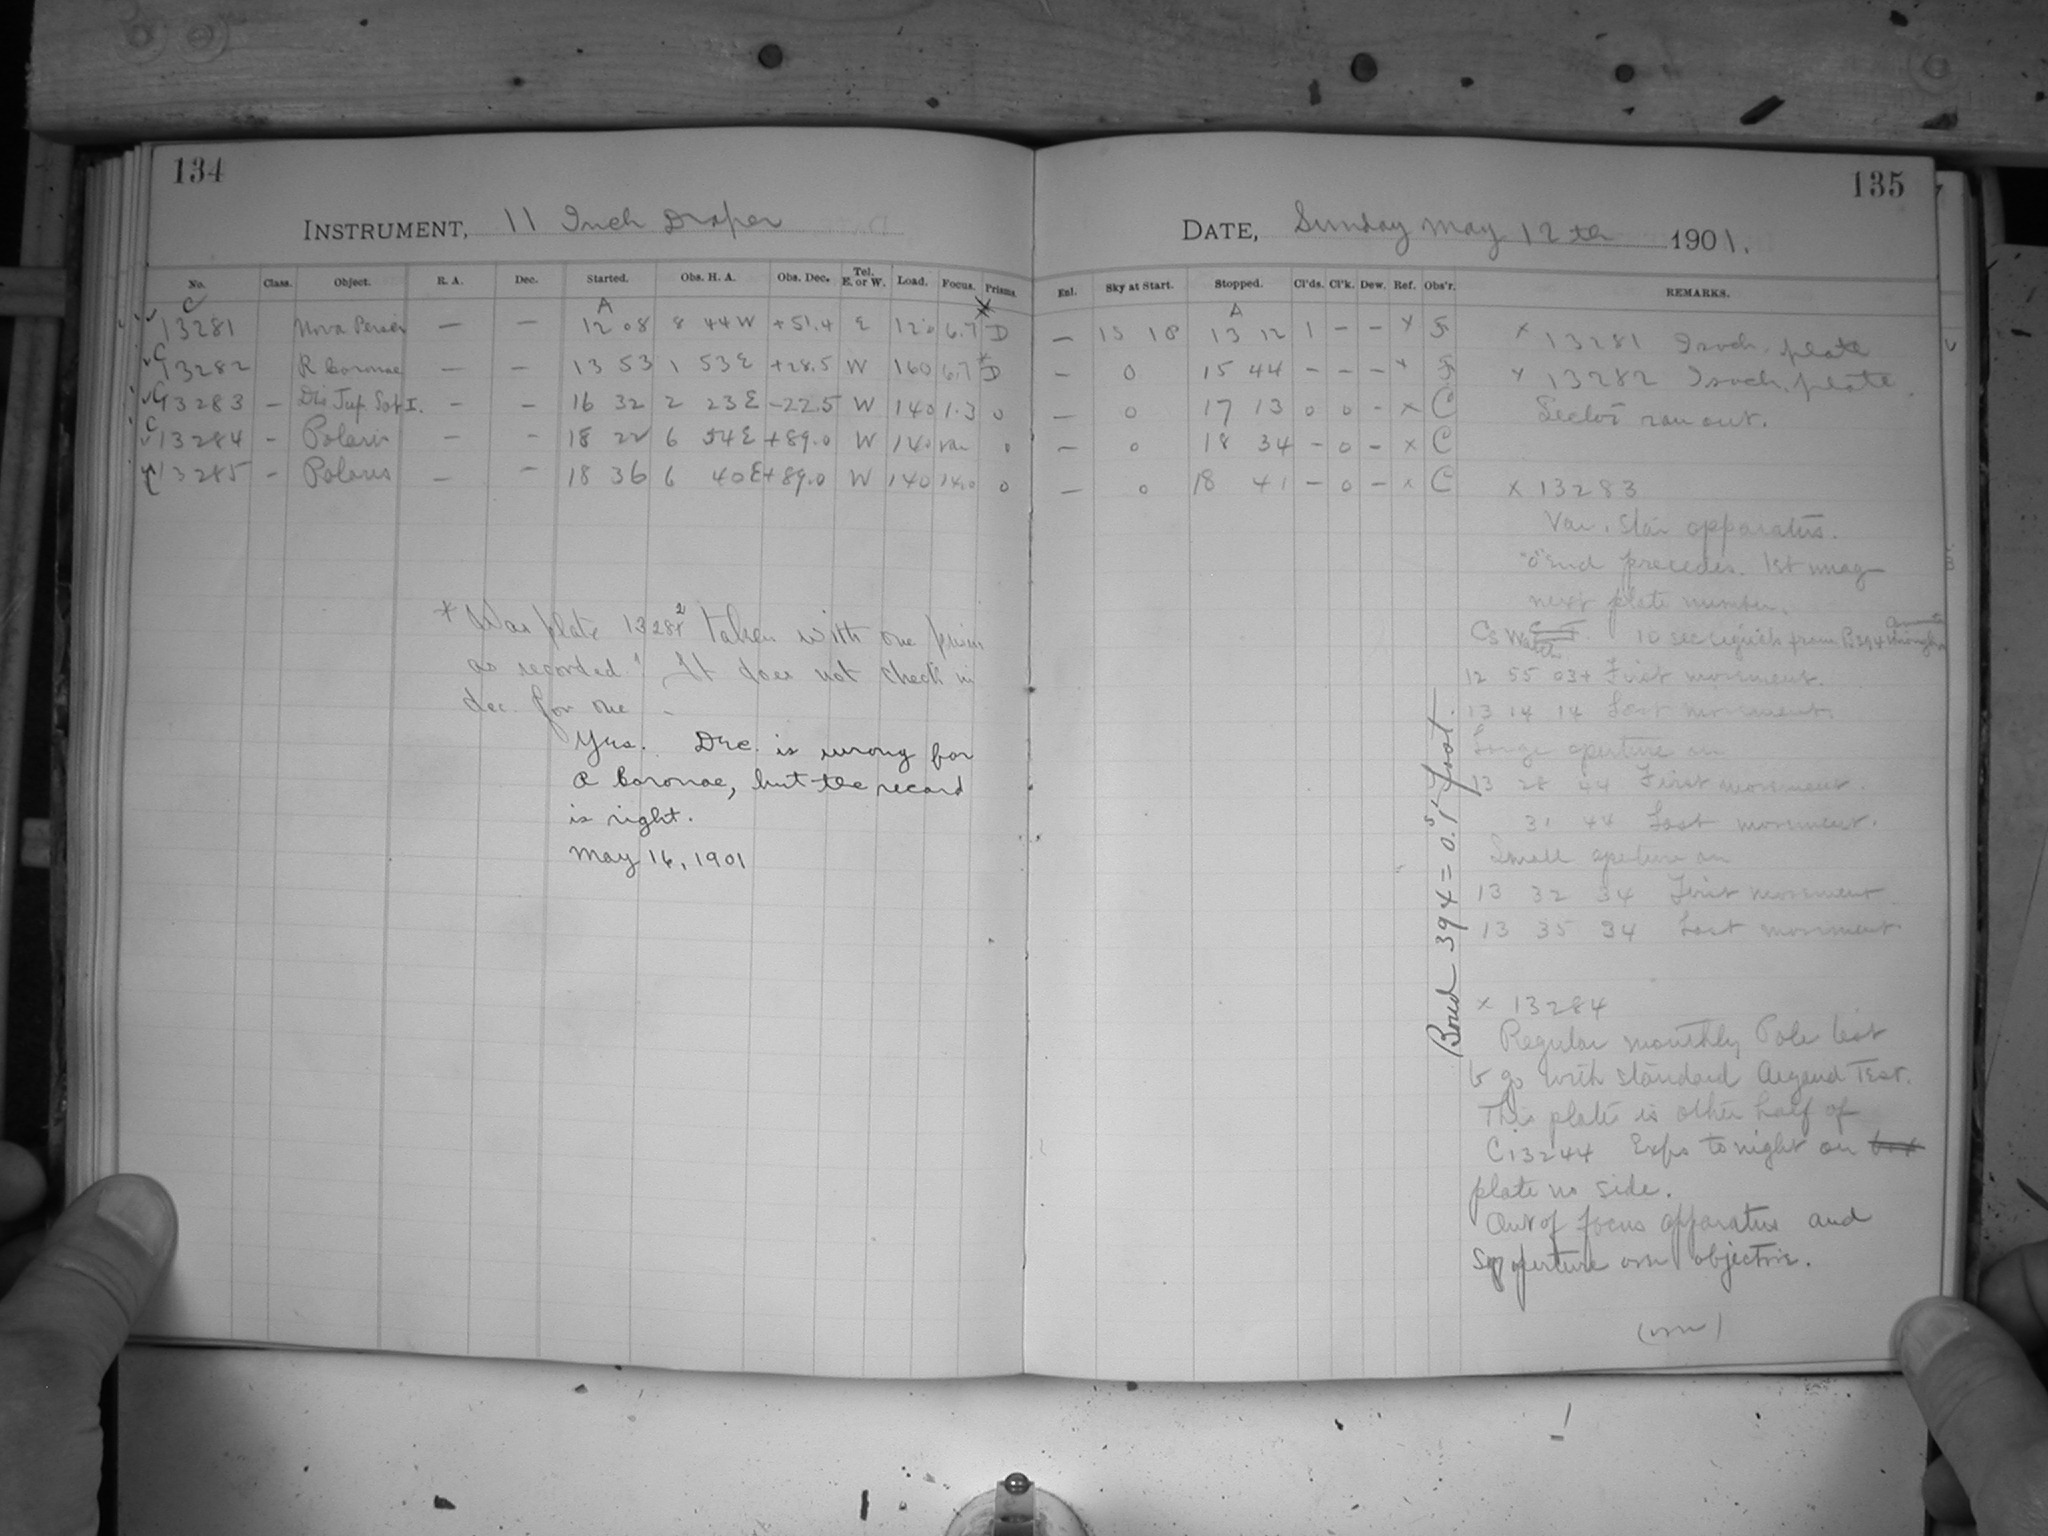 134
INSTRUMENT, 11 Inch Draper
No. Class. Object. R. A. Dec. Started. Obs. H. A. Obs. Dec. Tel. E. or W. Load. Focus. Prisms.
C A *
13281 Nova Persei — — 12 08 8 44 W +51.4 E 120 6.7 D
C 13282 R Coronae — — 13 53 1 53 E +28.5 W 160 6.7 * D
C 13283 — Jup Sat I. - - 16 32 2 23 E -22.5 W 140 1.3 0
C 13284 - Polaris — - 18 22 6 54 E +89.0 W 140 var 0
C 13285 - Polaris — - 18 36 6 40 E +89.0 W 140 14.0 0
* Was plate 13282 taken with one prism
as recorded? It does not check in
dec. for one -
Yes. Dec. is wrong for
R Coronae, but the record
is right.
May 16, 1901
135
DATE, Sunday May 12th 1901.
Enl. Sky at Start. Stopped. Cl'ds. Cl'k. Dew. Ref. Obs'r. REMARKS.
A
— 15 18 13 12 1 - - x
— 0 15 44 - - - x
— 0 17 13 0 0 - x C
— 0 18 34 - 0 - x C
— 0 18 41 - 0 - x C
x 13281 Isoch. plate
x 13282 Isoch. plate.
Sector ran out.
x 13283
Var. Star apparatus.
"0" End precedes. 1st mag
next plate number.
Cs Watch 10 sec from B394
12 55 03+ First movement.
13 14 14 Last movement.
Large aperture on
13 28 44 First movement.
31 44 Last movement.
Small aperture on
13 32 34 First movement
13 35 34 Last movement
Bond 394 = 0.5 fast.
x 13284
Regular monthly Pole test
to go with standard Argand Test.
This plate is other half of
C13244 Exps tonight on
plate no side.
Out of focus apparatus and
aperture over objective.
(over)